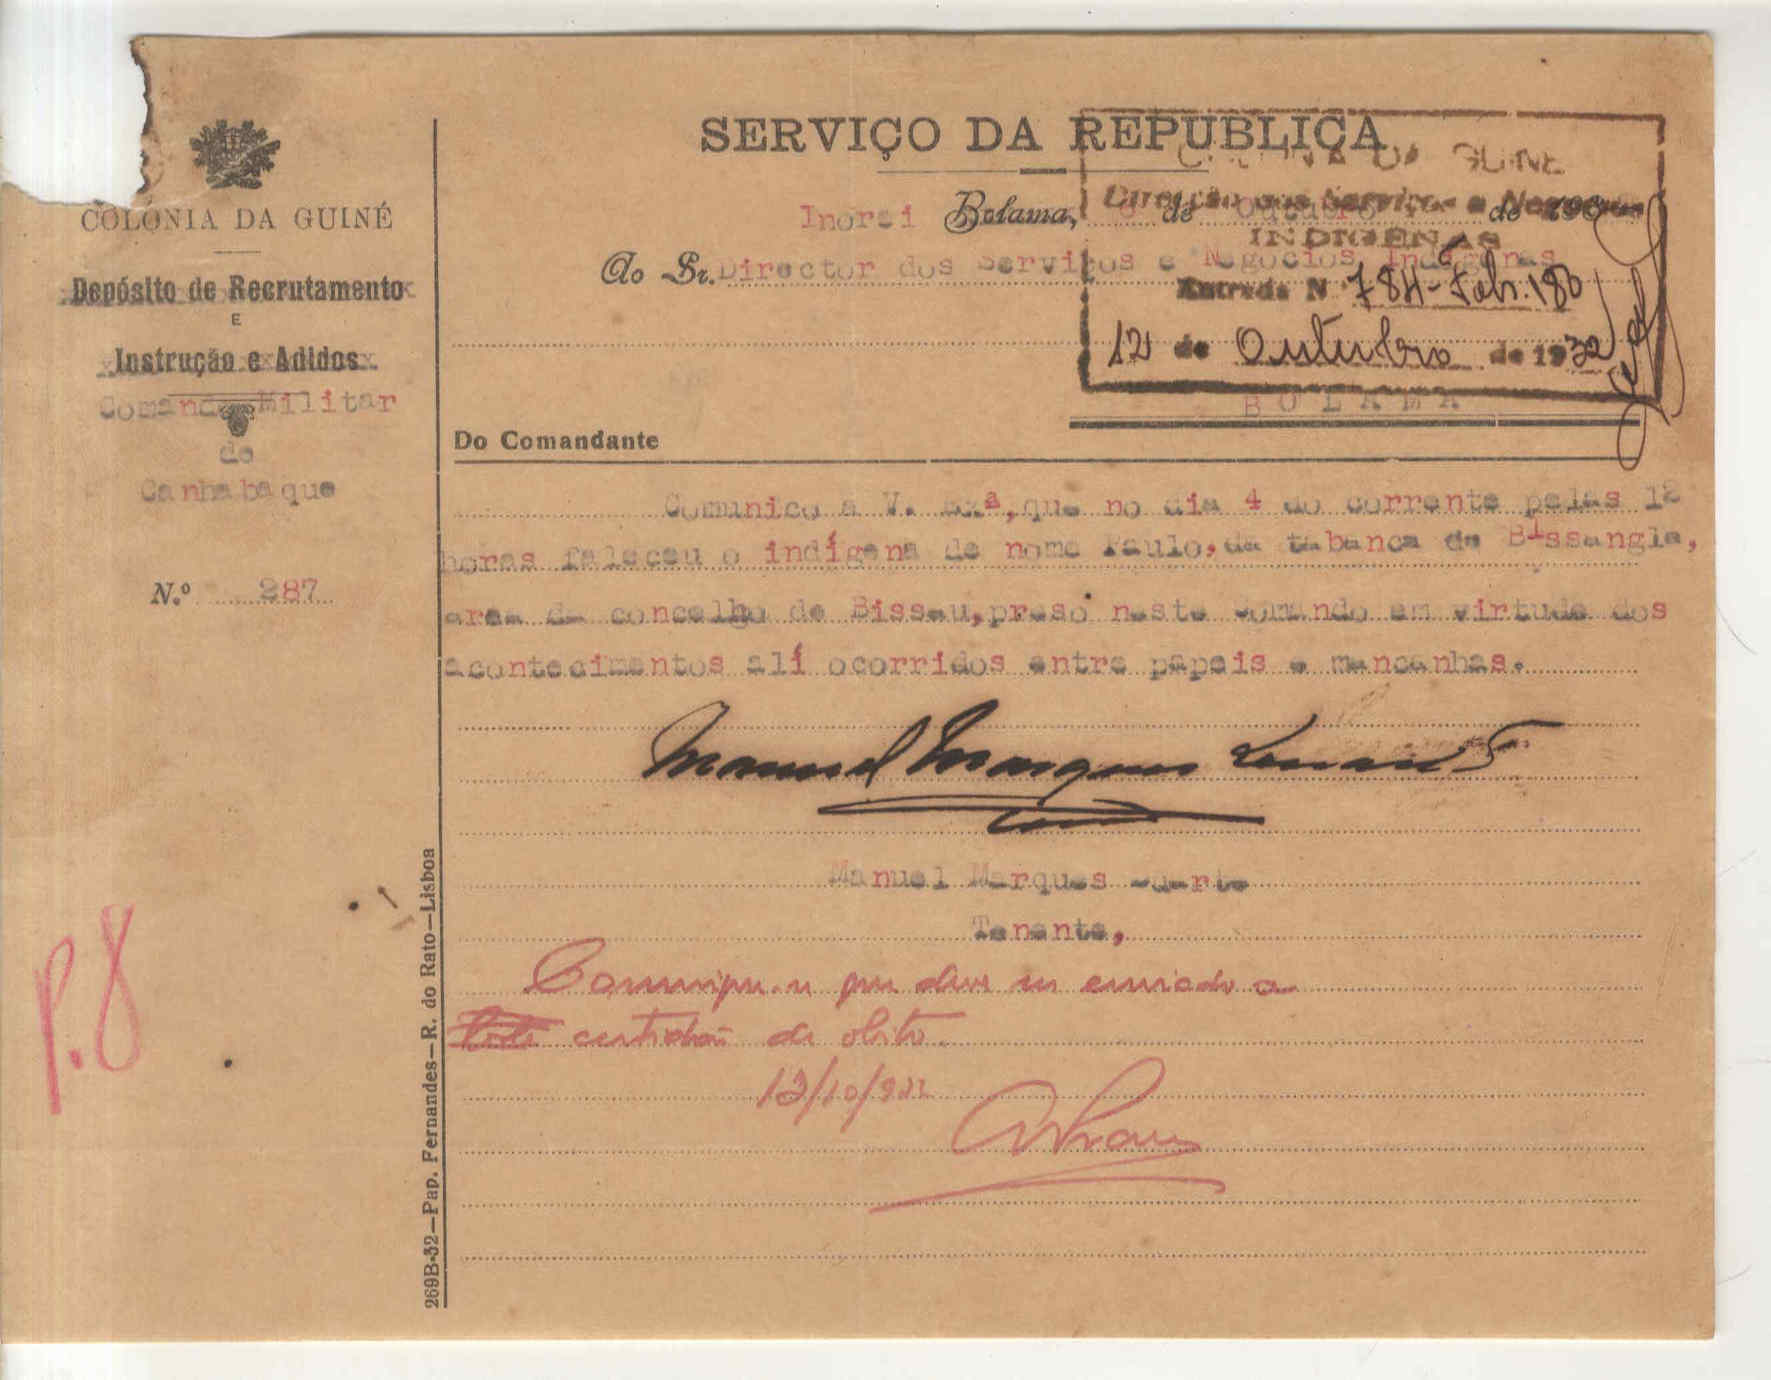 SERVIÇO DA REPUBLICA
COLÓNIA DA GUINÉ
Depósito de Recrutamento
E
Instrução e Adidos
Comando Militar
de
Canhabaque
N.º 287
Inorei Bolama, 8 de Outubro de 193
Ao Sr. Director dos Serviços e Negocios Indígenas
BOLAMA
COLONIA DA GUINÉ
Direcção dos Serviços e Negocios
INDIGENAS
Entrada N 784
12 de Outubro de 1932
Do Comandante
Comunico a V. Exª, que no dia 4 do corrente pelas 12
horas faleceu o indígena de nome Paulo, da tabanca de Bissangla,
area do concelho de Bissau, preso neste Comando em virtude dos
acontecimentos alí ocorridos entre papeis e mancanhas.
Manuel Marques Duarte
Tenente
Manuel Marques Duarte
Tenente,
que deve ser enviado a
certidão de obito.
12/10/932
P.8
269B-32—Pap. Fernandes—R. do Rato—Lisboa